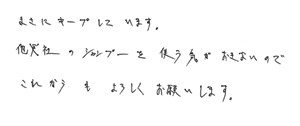 まさにキープして います。
他実社 の シャンプー を 使う気 が おきない ので
これからも よろしく お願い します。